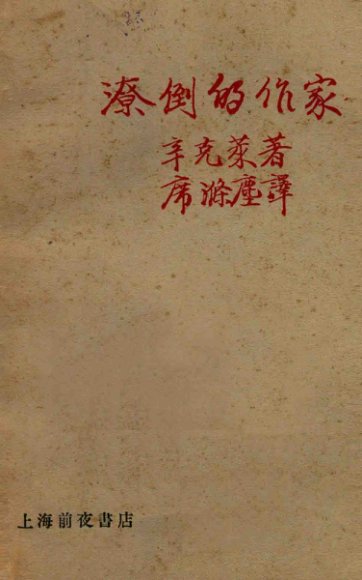 潦倒的作家
辛克萊著
席滌塵譯
上海前夜書店